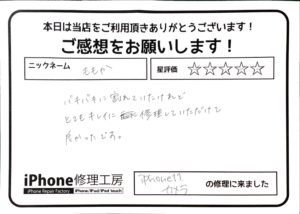 本日は当店をご利用頂きありがとうございます!
ご感想をお願いします!
ニックネーム ももか
星評価 ☆☆☆☆☆
バキバキに割れていたけれど
とてもキレイに修理していただけて
良かったです。
iPhone修理工房
iPhone Repair Factory
iPhone/iPad/iPod touch
iPhone11
カメラ
の修理に来ました